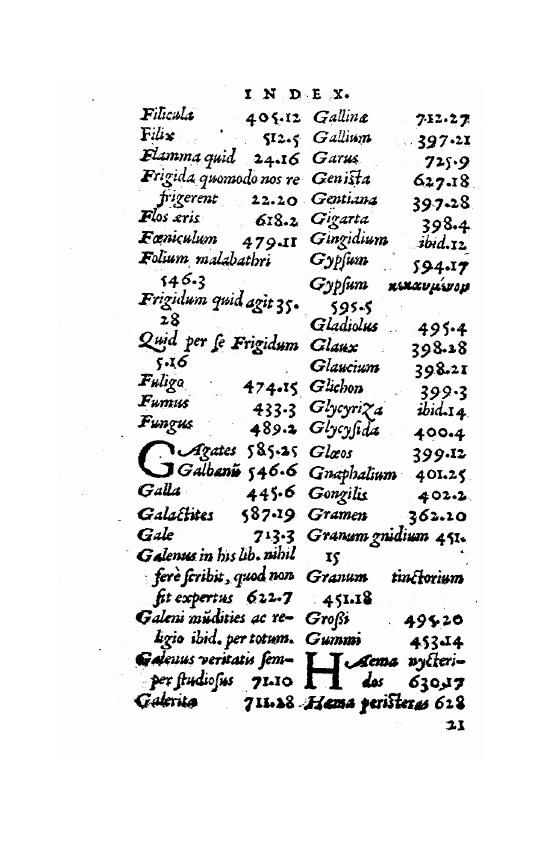 INDEX.
Filicula 405.12
Filix 512.5
Flamma quid 24.16
Frigida quomodo nos re
frigerent 22.20
Flos æris 618.2
Fœniculum 479.11
Folium malabathri
546.3
Frigidum quid agit 35.
28
Quid per se Frigidum
5.16
Fuligo 474.15
Fumus 433.3
Fungus 489.2
GAgates 585.25
Galbanũ 546.6
Galla 445.6
Galactites 587.19
Gale 713.3
Galenus in his lib. nihil
ferè scribit, quod non
sit expertus 622.7
Galeni mũdities ac re-
ligio ibid. per totum.
Galenus veritatis sem-
per studiosus 71.10
Galerita 711.28
Gallinæ 712.27
Gallium 397.21
Garus 725.9
Genista 627.18
Gentiana 397.28
Gigarta 398.4
Gingidium ibid.12
Gypsum 594.17
Gypsum κικαυμίνομ
595.5
Gladiolus 495.4
Glaux 398.28
Glaucium 398.21
Glichon 399.3
Glycyriza ibid.14
Glycysida 400.4
Glœos 399.12
Gnaphalium 401.25
Gongilis 402.2
Gramen 362.20
Granum gnidium 451.
15
Granum tinctorium
451.18
Grossi 495.20
Gummi 453.14
HAema nycteri-
dos 630.17
Hæma peristeras 628
21